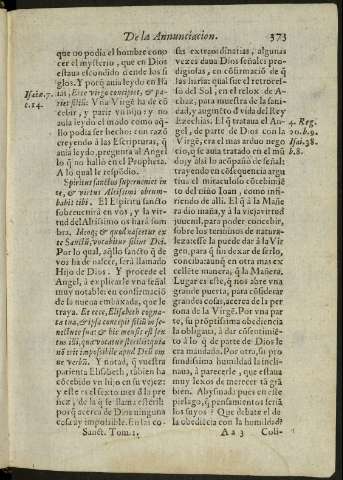 De la Annunciacion.
373
que no podia el hombre cono
cer el mysterio, que en Dios
estaua escondido desde los si
glos. Y porq̃ auia leydo en Isa
ias, Ecce virgo concipiet, & pa-
riet filiũ: Vna Virgẽ ha de cõ
cebir, y parir vn hijo; y no
auia leydo el modo como aq̃
llo podia ser hecho: con razõ
creyendo à las Escripturas, q̃
auia leydo, pregunta al Angel
lo q̃ no hallò en el Propheta.
A lo qual le respõdio.
Spiritus sanctus superueniet in
te, & virtus Altissimi obum-
babit tibi. El Espiritu sancto
sobreuendrà en vos, y la vir-
tud del Altissimo os harà som
bra. Ideoq; & quod nascetur ex
te Sanctũ, vocabitur filius Dei.
Por lo qual, aq̃llo sancto q̃ de
vos ha de nacer, serà llamado
Hijo de Dios. Y procede el
Angel, à explicarle vna señal
muy notable: en confirmaciõ
de la nueua embaxada, que le
traya. Et ecce, Elisabeth cogna-
ta tua, & ipsa concepit filiũ in se-
nectute sua: & hic mensis est sex
tus illi, quæ vocatur sterilis: quia
nõ erit impossibile apud Deũ om
ne verbũ. Y notad, q̃ vuestra
parienta Elisabeth, tãbien ha
cõcebido vn hijo en su vejez:
y este es el sexto mes dla pre
ñez, de la q̃ se llama esteril:
porq̃ acerca de Dios ninguna
cosa ay impossible. En las co-
Sanct. Tom. 1.
Isaiæ. 7.
c. 14.
sas extraordinarias, algunas
vezes daua Dios señales pro-
digiosas, en cõfirmaciõ de q̃
las haria: qual fue el retroces-
so del Sol, en el relox de A-
chaz, para muestra de la sani-
dad, y augmẽto d̃ vida del Rey
Ezechias. El q̃ traxua el An-
gel, de parte de Dios con la
Virgẽ, era el mas arduo nego
cio, q̃ auia auido en el mũ
do, y assi lo acõpañò de señal:
trayendo en cõsequencia argu
tiua el miraculoso cõcebimiẽ
to del niño Ioan, como infi-
riendo de alli. El q̃ à la Mañe
ra dio maña, y à la vieja virtud
juuenil, para poder concebir,
sobre los terminos de natura-
leza: esse la puede dar à la Vir
gen, para q̃ sin dexar de serlo,
conciba: aunq̃ en otra mas ex
cellẽte manera, q̃ la Mañera.
Lugar es este, q̃ nos abre vna
grande puerta, para cõsiderar
grandes cosas, acerca de la per
sona de la Virgẽ. Por vna par
te, su prõptissima obediencia
la obligaua, à dar cõsentimiẽ-
to à lo q̃ de parte de Dios le
era mandado. Por otra, su pro
fundissima humildad la incli-
naua, à parecerle, que estaua
muy lexos de merecer tã gran
bien. Abysmada pues en este
pielago, q̃ pensamientos serià
los suyos? Que debate el de
la obediẽcia con la humildad?
A a 3
Coli-
4. Reg.
20. b. 9.
Isai. 38.
b. 8.